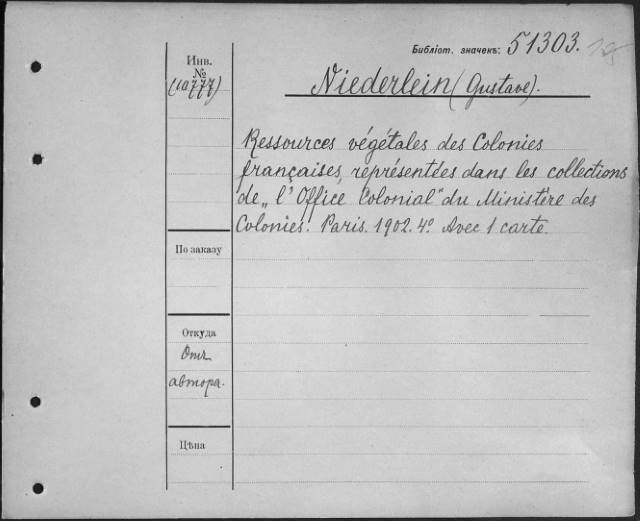 Библіот. значекъ: 51303.
Инв.
№
(10777)
Niederlein (Gustave).
Ressources végétales des Colonies
françaises, représentées dans les collections
de „l'Office Colonial" du Ministère des
Colonies. Paris. 1902. 4º. Avec 1 carte.
По заказу
Откуда
Отъ
автора.
Цѣна